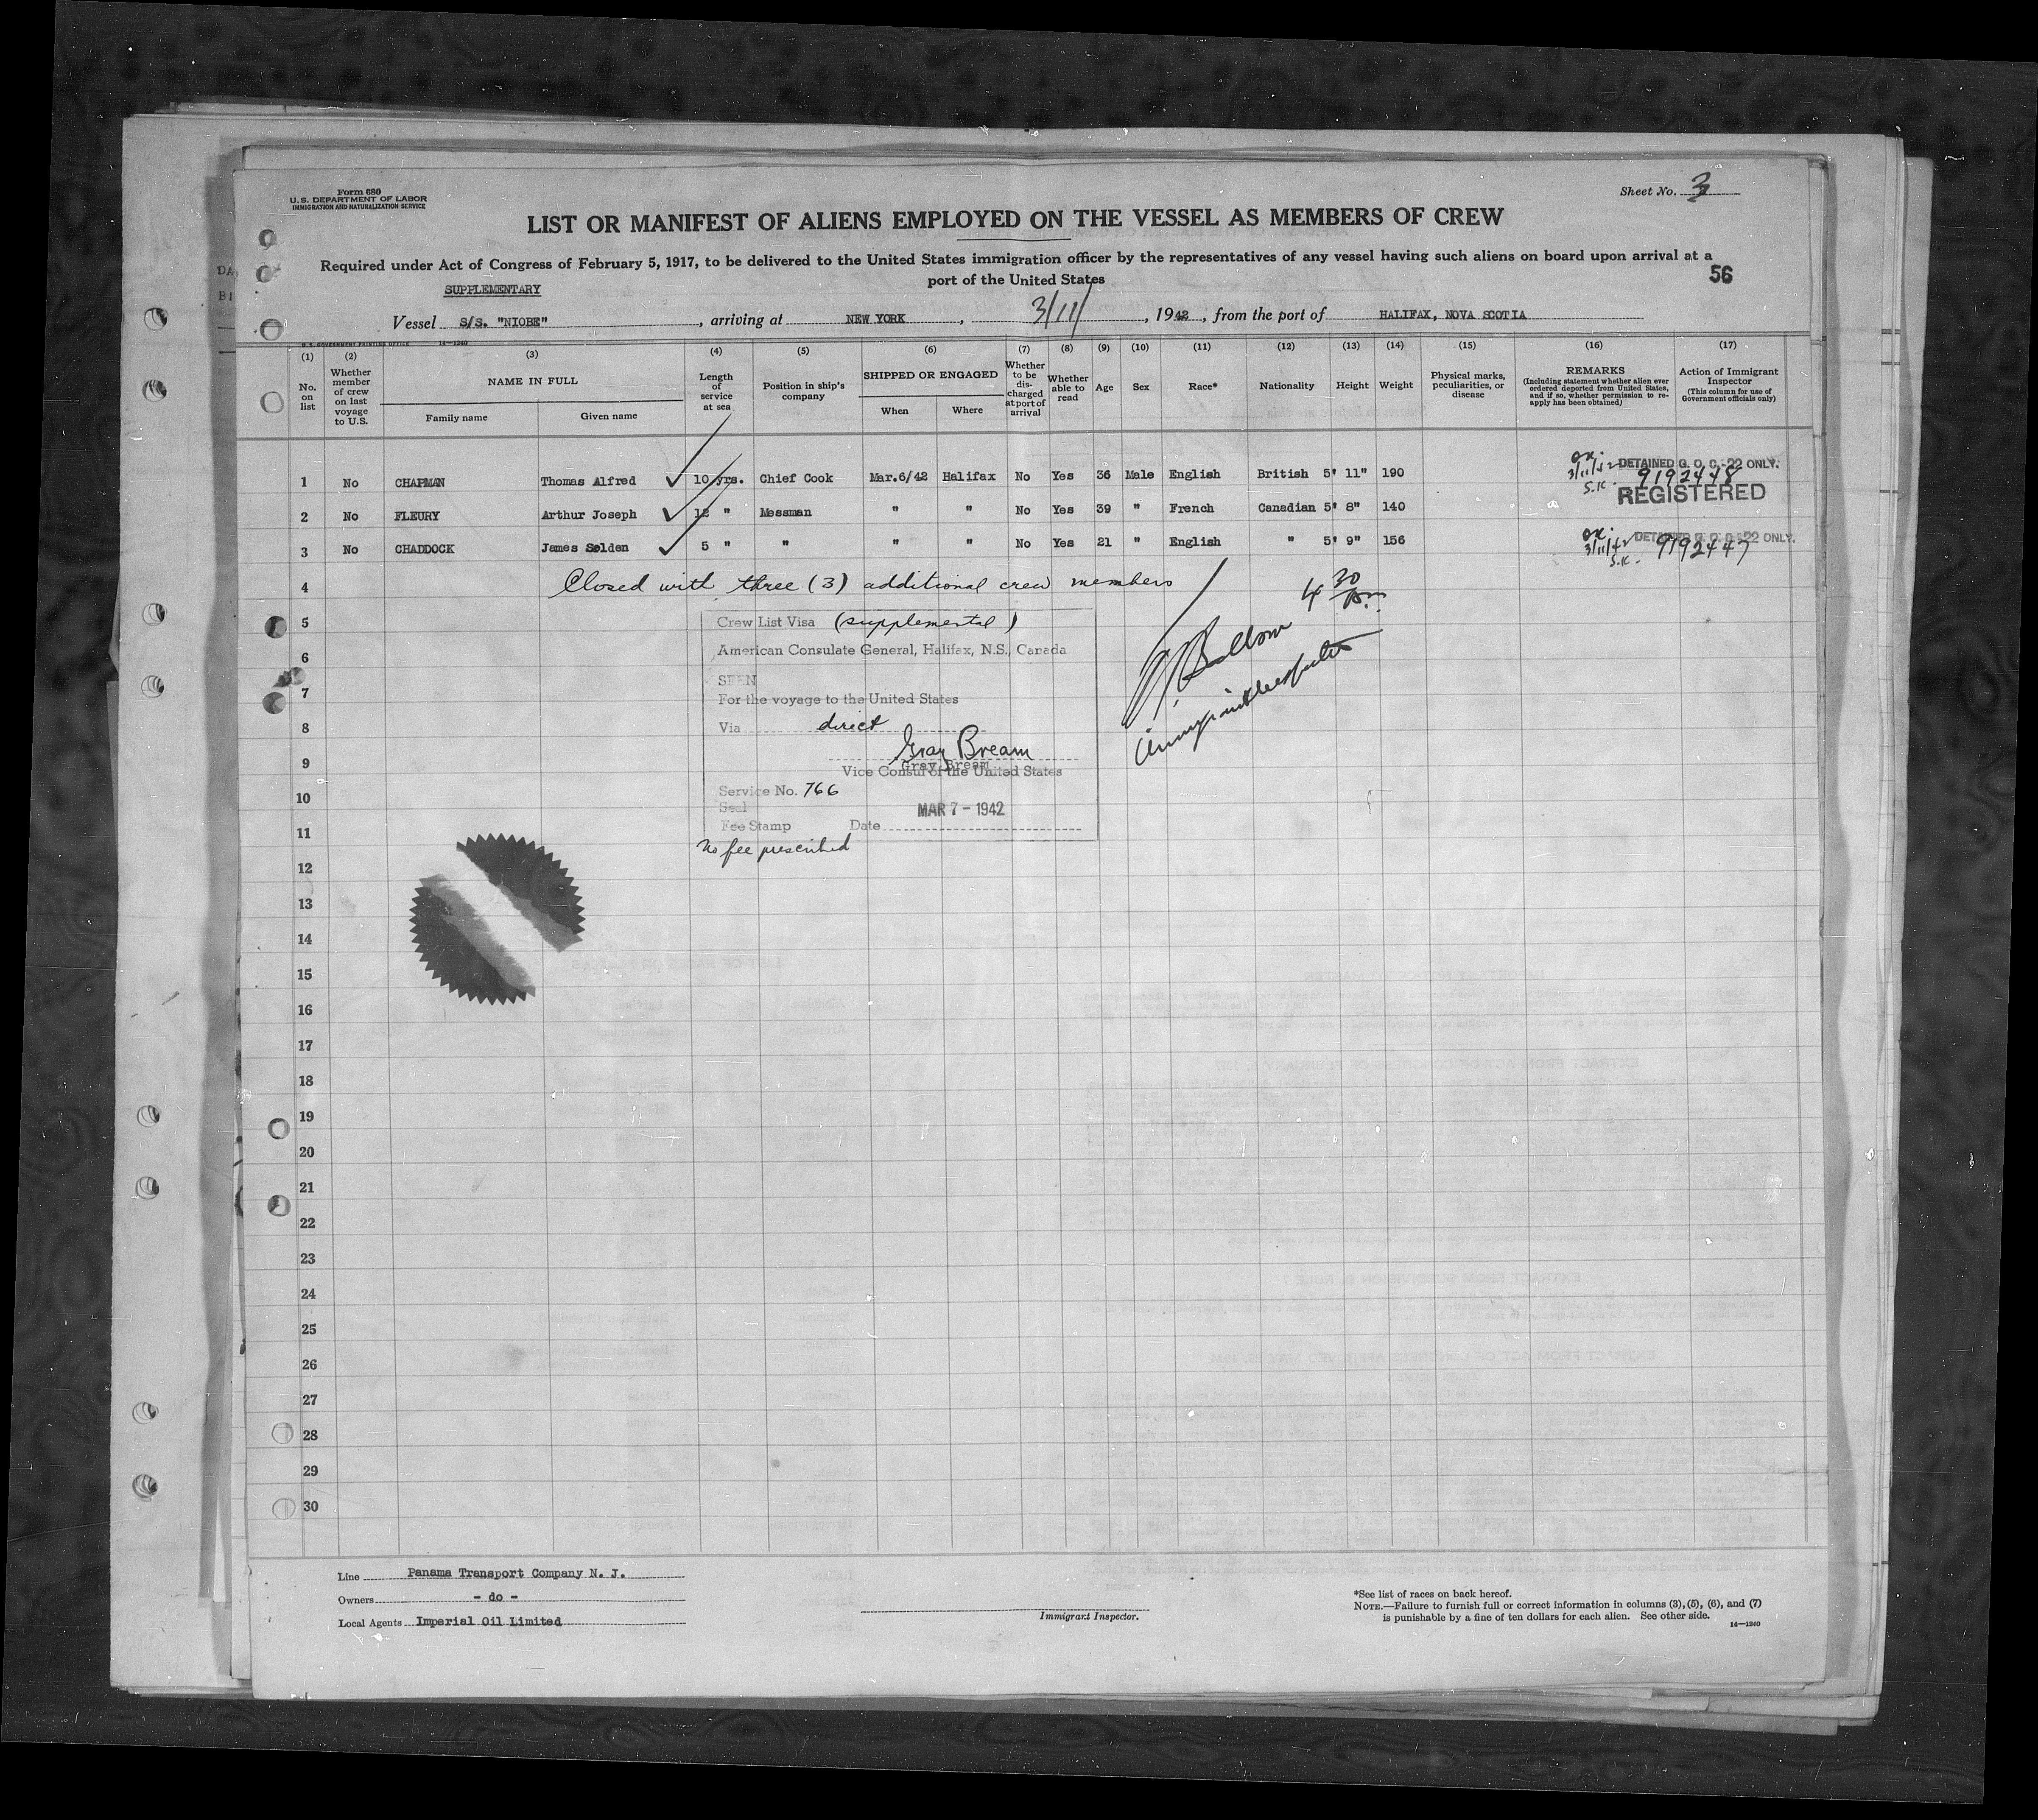 Form 680
U.S. DEPARTMENT OF LABOR
IMMIGRATION AND NATURALIZATION SERVICE
Sheet No. 3
LIST OR MANIFEST OF ALIENS EMPLOYED ON THE VESSEL AS MEMBERS OF CREW
Required under Act of Congress of February 5, 1917, to be delivered to the United States immigration officer by the representatives of any vessel having such aliens on board upon arrival at a
port of the United States
56
SUPPLEMENTARY
Vessel S/S. "NIOBE", arriving at NEW YORK, 3/11/, 1942, from the port of HALIFAX, NOVA SCOTIA
U.S. GOVERNMENT PRINTING OFFICE 14—1240
(1) (2) (3) (4) (5) (6) (7) (8) (9) (10) (11) (12) (13) (14) (15) (16) (17)
No. on list
Whether member of crew on last voyage to U.S.
NAME IN FULL
Family name
Given name
Length of service at sea
Position in ship's company
SHIPPED OR ENGAGED
When
Where
Whether to be discharged at port of arrival
Whether able to read
Age
Sex
Race*
Nationality
Height
Weight
Physical marks, peculiarities, or disease
REMARKS
(Including statement whether alien ever ordered deported from United States, and if so, whether permission to reapply has been obtained)
Action of Immigrant Inspector
(This column for use of Government officials only)
1 No CHAPMAN Thomas Alfred 10 yrs. Chief Cook Mar.6/42 Halifax No Yes 36 Male English British 5' 11" 190
OK. 3/11/42 S.K. DETAINED G. O. C.-22 ONLY.
9192448
REGISTERED
2 No FLEURY Arthur Joseph 12 " Messman " " No Yes 39 " French Canadian 5' 8" 140
3 No CHADDOCK James Selden 5 " " " " No Yes 21 " English " 5' 9" 156
OK. 3/11/42 S.K. DETAINED G. O. C.-22 ONLY.
9192447
4 Closed with three (3) additional crew members
4 30 pm
5 Crew List Visa (supplemental)
American Consulate General, Halifax, N.S., Canada
6
SEEN
7 For the voyage to the United States
8 Via direct
Gray Bream
Gray Bream
9 Vice Consul of the United States
10 Service No. 766
Seal
MAR 7 - 1942
11 Fee Stamp Date
No fee prescribed
12
13
14
15
16
17
18
19
20
21
22
23
24
25
26
27
28
29
30
Line Panama Transport Company N. J.
Owners - do -
Local Agents Imperial Oil Limited
Immigrant Inspector.
*See list of races on back hereof.
NOTE.—Failure to furnish full or correct information in columns (3), (5), (6), and (7)
is punishable by a fine of ten dollars for each alien. See other side.
14—1240